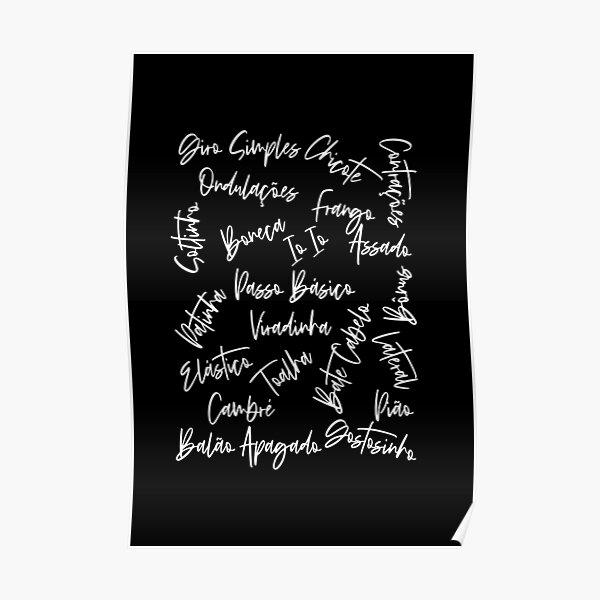 Giro Simples Chicote
Contrações
Ondulações
Frango
Assado
Soltinho
Boneca
Io Io
Passo Básico
Bônus
Patinha
Viradinha
Bate Cabelo
Lateral
Elástico
Toalha
Cambré
Pião
Balão Apagado Gostosinho